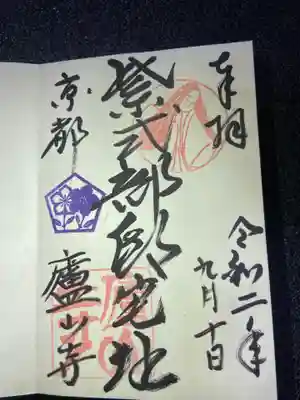 奉拝
令和二年
九月十日
紫式部邸宅地
京都
廬山寺